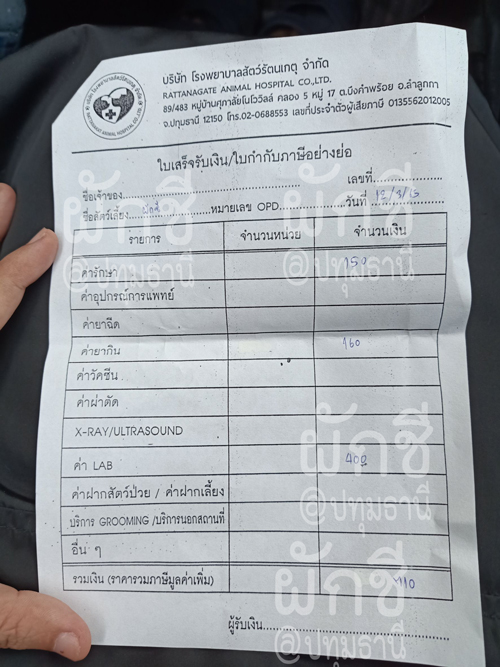 บริษัท โรงพยาบาลสัตว์รัตนเกตุ จำกัด
RATTANAGATE ANIMAL HOSPITAL CO.,LTD.
89/483 หมู่บ้านศุภาลัยโนโววิลล์ คลอง 5 หมู่ 17 ต.บึงคำพร้อย อ.ลำลูกกา
จ.ปทุมธานี 12150 โทร.02-0688553 เลขที่ประจำตัวผู้เสียภาษี 0135562012005
ใบเสร็จรับเงิน/ใบกำกับภาษีอย่างย่อ
ชื่อเจ้าของ
เลขที่
ชื่อสัตว์เลี้ยง ผักชี หมายเลข OPD. วันที่
รายการ จำนวนหน่วย จำนวนเงิน
ค่ารักษา 150
ค่าอุปกรณ์การแพทย์
ค่ายาฉีด
ค่ายากิน 160
ค่าวัคซีน
ค่าผ่าตัด
X-RAY/ULTRASOUND
ค่า LAB 400
ค่าฝากสัตว์ป่วย / ค่าฝากเลี้ยง
บริการ GROOMING /บริการนอกสถานที่
อื่น ๆ
รวมเงิน (ราคารวมภาษีมูลค่าเพิ่ม) 710
ผู้รับเงิน
ผักชี
@ปทุมธานี
ผักชี
@ปทุมธานี
ผักชี
@ปทุมธานี
ผักชี
@ปทุมธานี